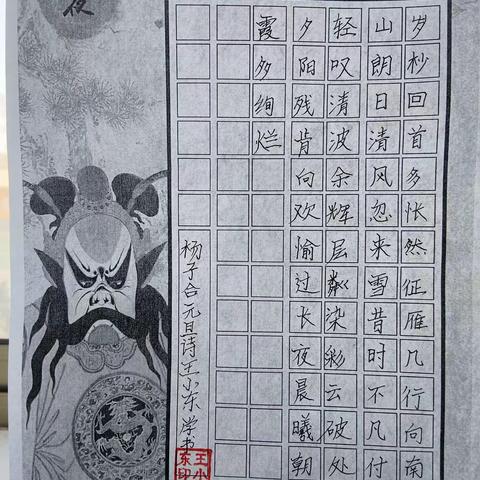 岁杪回首多怅然征雁几行向南
山朗日清风忽来雪昔时不凡付
轻叹清波余辉层粼染彩云破处
夕阳残肯向欢愉过长夜晨曦朝
霞多绚烂
杨子合元旦诗王小东学书
王小东印
夜